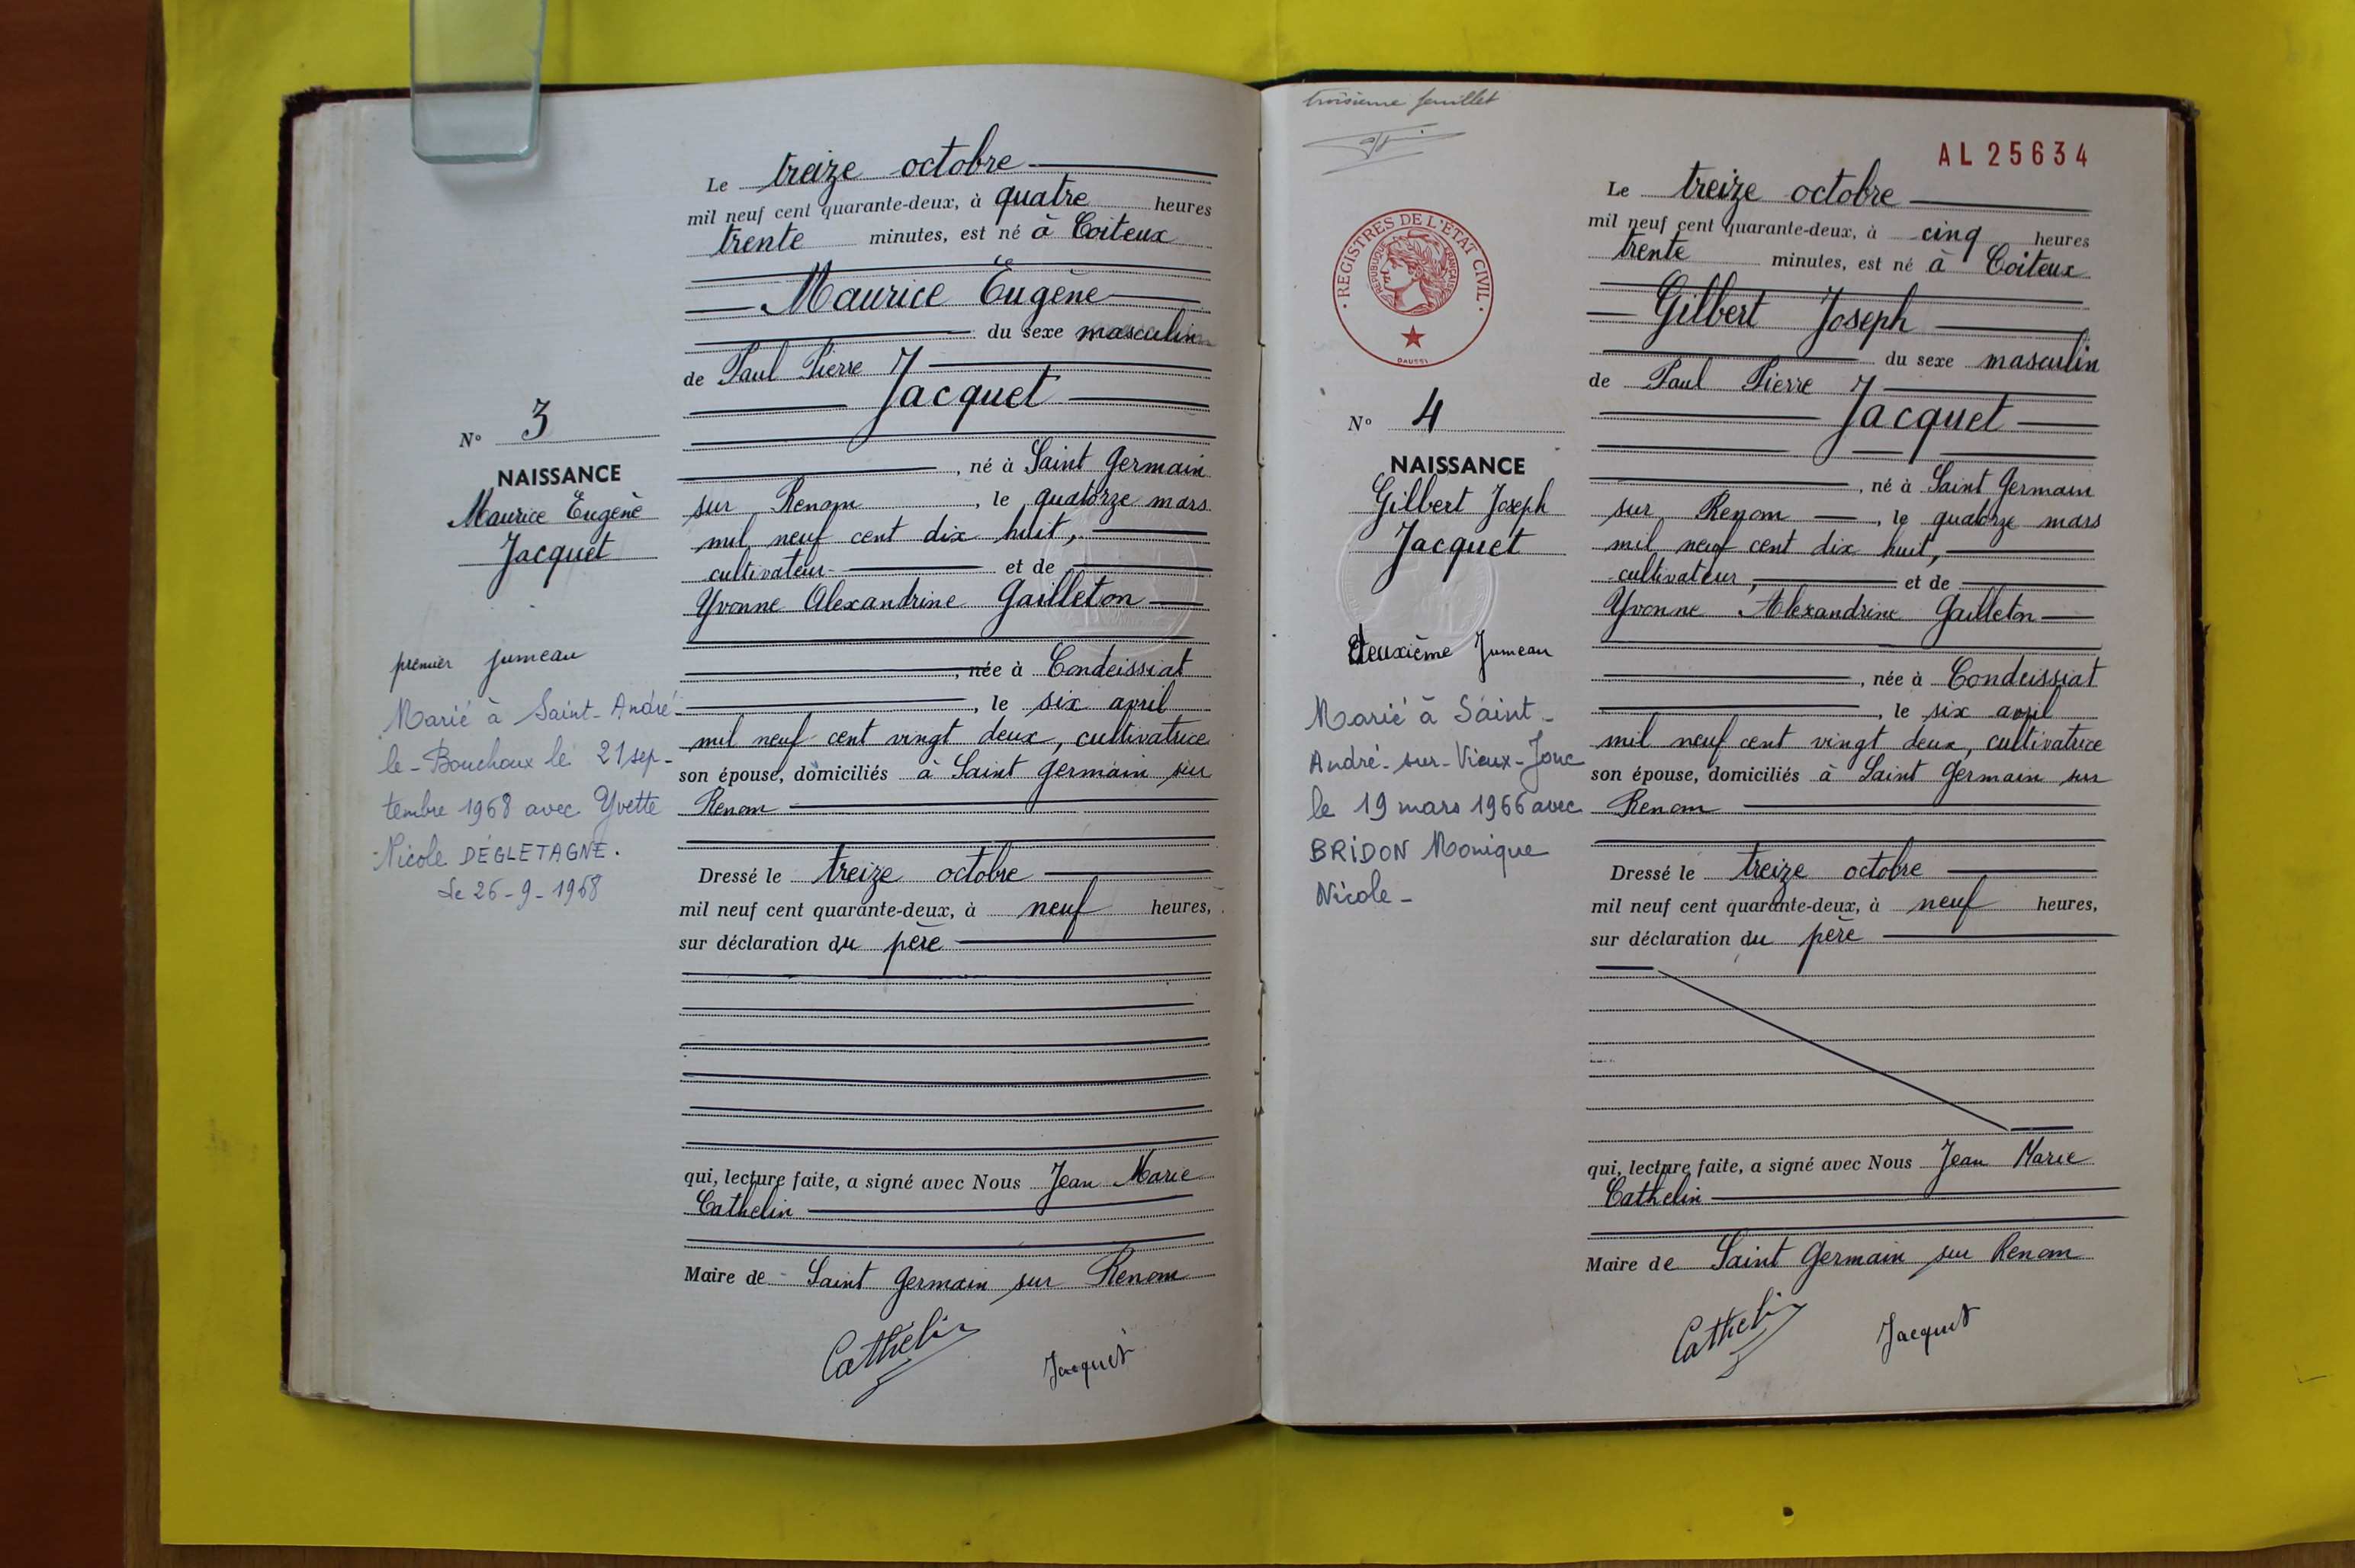 Le treize octobre
mil neuf cent quarante-deux, à quatre heures
trente minutes, est né à Coiteux
Maurice Eugène
du sexe masculin
de Paul Pierre
Jacquet
N° 3
NAISSANCE
Maurice Eugène
Jacquet
premier jumeau
Marié à Saint-André-
le-Bouchoux le 21 sep-
tembre 1968 avec Yvette
Nicole DÉGLETAGNE.
Le 26-9-1968
, né à Saint Germain
sur Renom, le quatorze mars
mil neuf cent dix huit,
cultivateur et de
Yvonne Alexandrine Gailleton
, née à Condeissiat
, le six avril
mil neuf cent vingt deux, cultivatrice
son épouse, domiciliés à Saint Germain sur
Renom
Dressé le treize octobre
mil neuf cent quarante-deux, à neuf heures,
sur déclaration du père
qui, lecture faite, a signé avec Nous Jean Marie
Cathelin
Maire de Saint Germain sur Renom
Cathelin
Jacquet
troisième feuillet
AL 25634
REGISTRES DE L'ÉTAT CIVIL
RÉPUBLIQUE FRANÇAISE
DAUSSI
Le treize octobre
mil neuf cent quarante-deux, à cinq heures
trente minutes, est né à Coiteux
Gilbert Joseph
du sexe masculin
de Paul Pierre
Jacquet
N° 4
NAISSANCE
Gilbert Joseph
Jacquet
deuxième Jumeau
Marié à Saint-
André-sur-Vieux-Jonc
le 19 mars 1966 avec
BRIDON Monique
Nicole-
, né à Saint Germain
sur Renom, le quatorze mars
mil neuf cent dix huit,
cultivateur, et de
Yvonne Alexandrine Gailleton
, née à Condeissiat
, le six avril
mil neuf cent vingt deux, cultivatrice
son épouse, domiciliés à Saint Germain sur
Renom
Dressé le treize octobre
mil neuf cent quarante-deux, à neuf heures,
sur déclaration du père
qui, lecture faite, a signé avec Nous Jean Marie
Cathelin
Maire de Saint Germain sur Renom
Cathelin
Jacquet